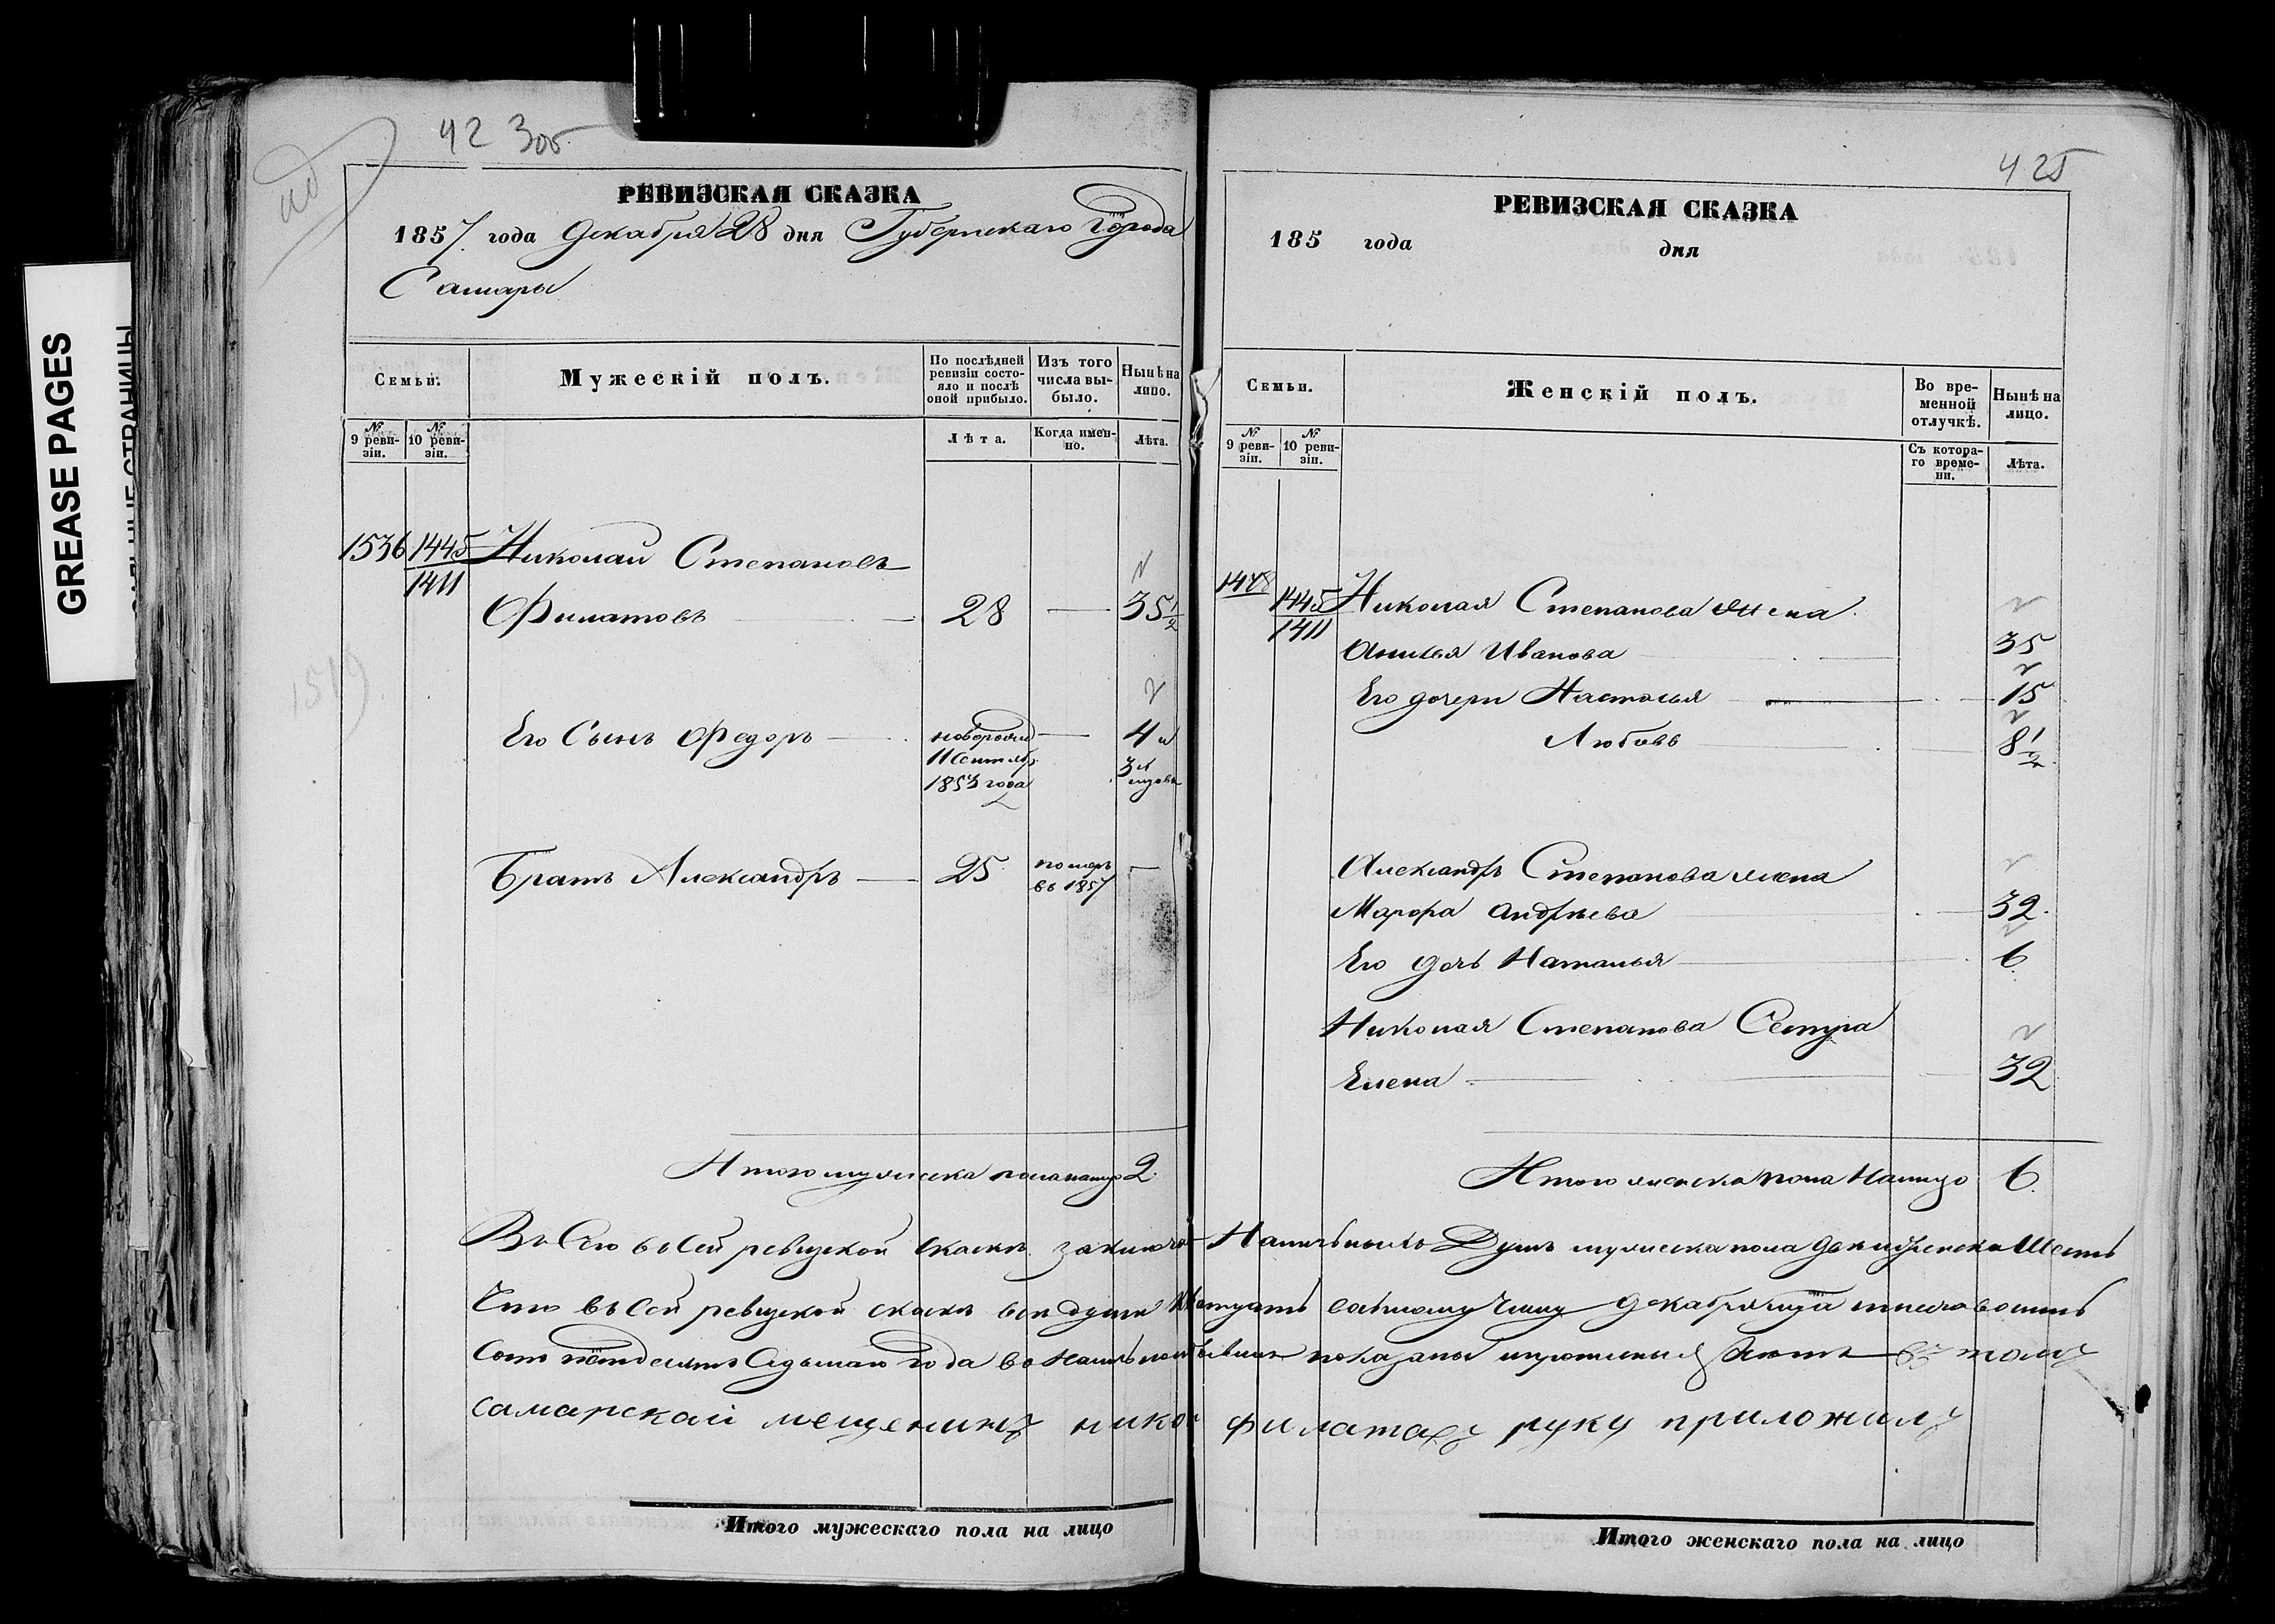 42 3об
РЕВИЗСКАЯ СКАЗКА
1857 года Декабря 28 дня Губернскаго Города
Самары
Семьи.
Мужескій полъ.
По послѣдней ревизіи состояло и послѣ оной прибыло.
Изъ того числа выбыло.
Нынѣ на лицо.
№ 9 ревизіи.
№ 10 ревизіи.
Лѣта.
Когда именно.
Лѣта.
1536 1445 Николай Степановъ
1411
Филатовъ 28 — 35 1/2
Его Сынъ Федоръ — новорожд — 4 и
11 Сентябр 3
1853 года
Братъ Александръ — 25 померъ —
въ 1857
Итого мужеска пола налицо 2
Итого мужескаго пола на лицо
425
РЕВИЗСКАЯ СКАЗКА
185 года дня
Семьи.
Женскій полъ.
Во временной отлучкѣ.
Нынѣ на лицо.
№ 9 ревизіи.
№ 10 ревизіи.
Съ котораго времени.
Лѣта.
1445 Николая Степанова жена
1411
Иванова 35
Его дочери Настасья 15
Любовь 8 1/2
Александръ Степанова жена
Марфа Андреева 32
Его дочь Наталья 6
Николая Степанова Сестра
Елена 32
Итого женска пола Налицо 6
Всего в Сей ревизской Сказке заключ Наличныхъ Душъ мужеска пола два женска Шесть
Что въ Сей ревизской сказке все души Декабря
Сотъ Седьмаго Года во показаны въ томъ
самарскай мещенинъ нико филатавъ руку приложилъ
Итого женскаго пола на лицо
GREASE PAGES